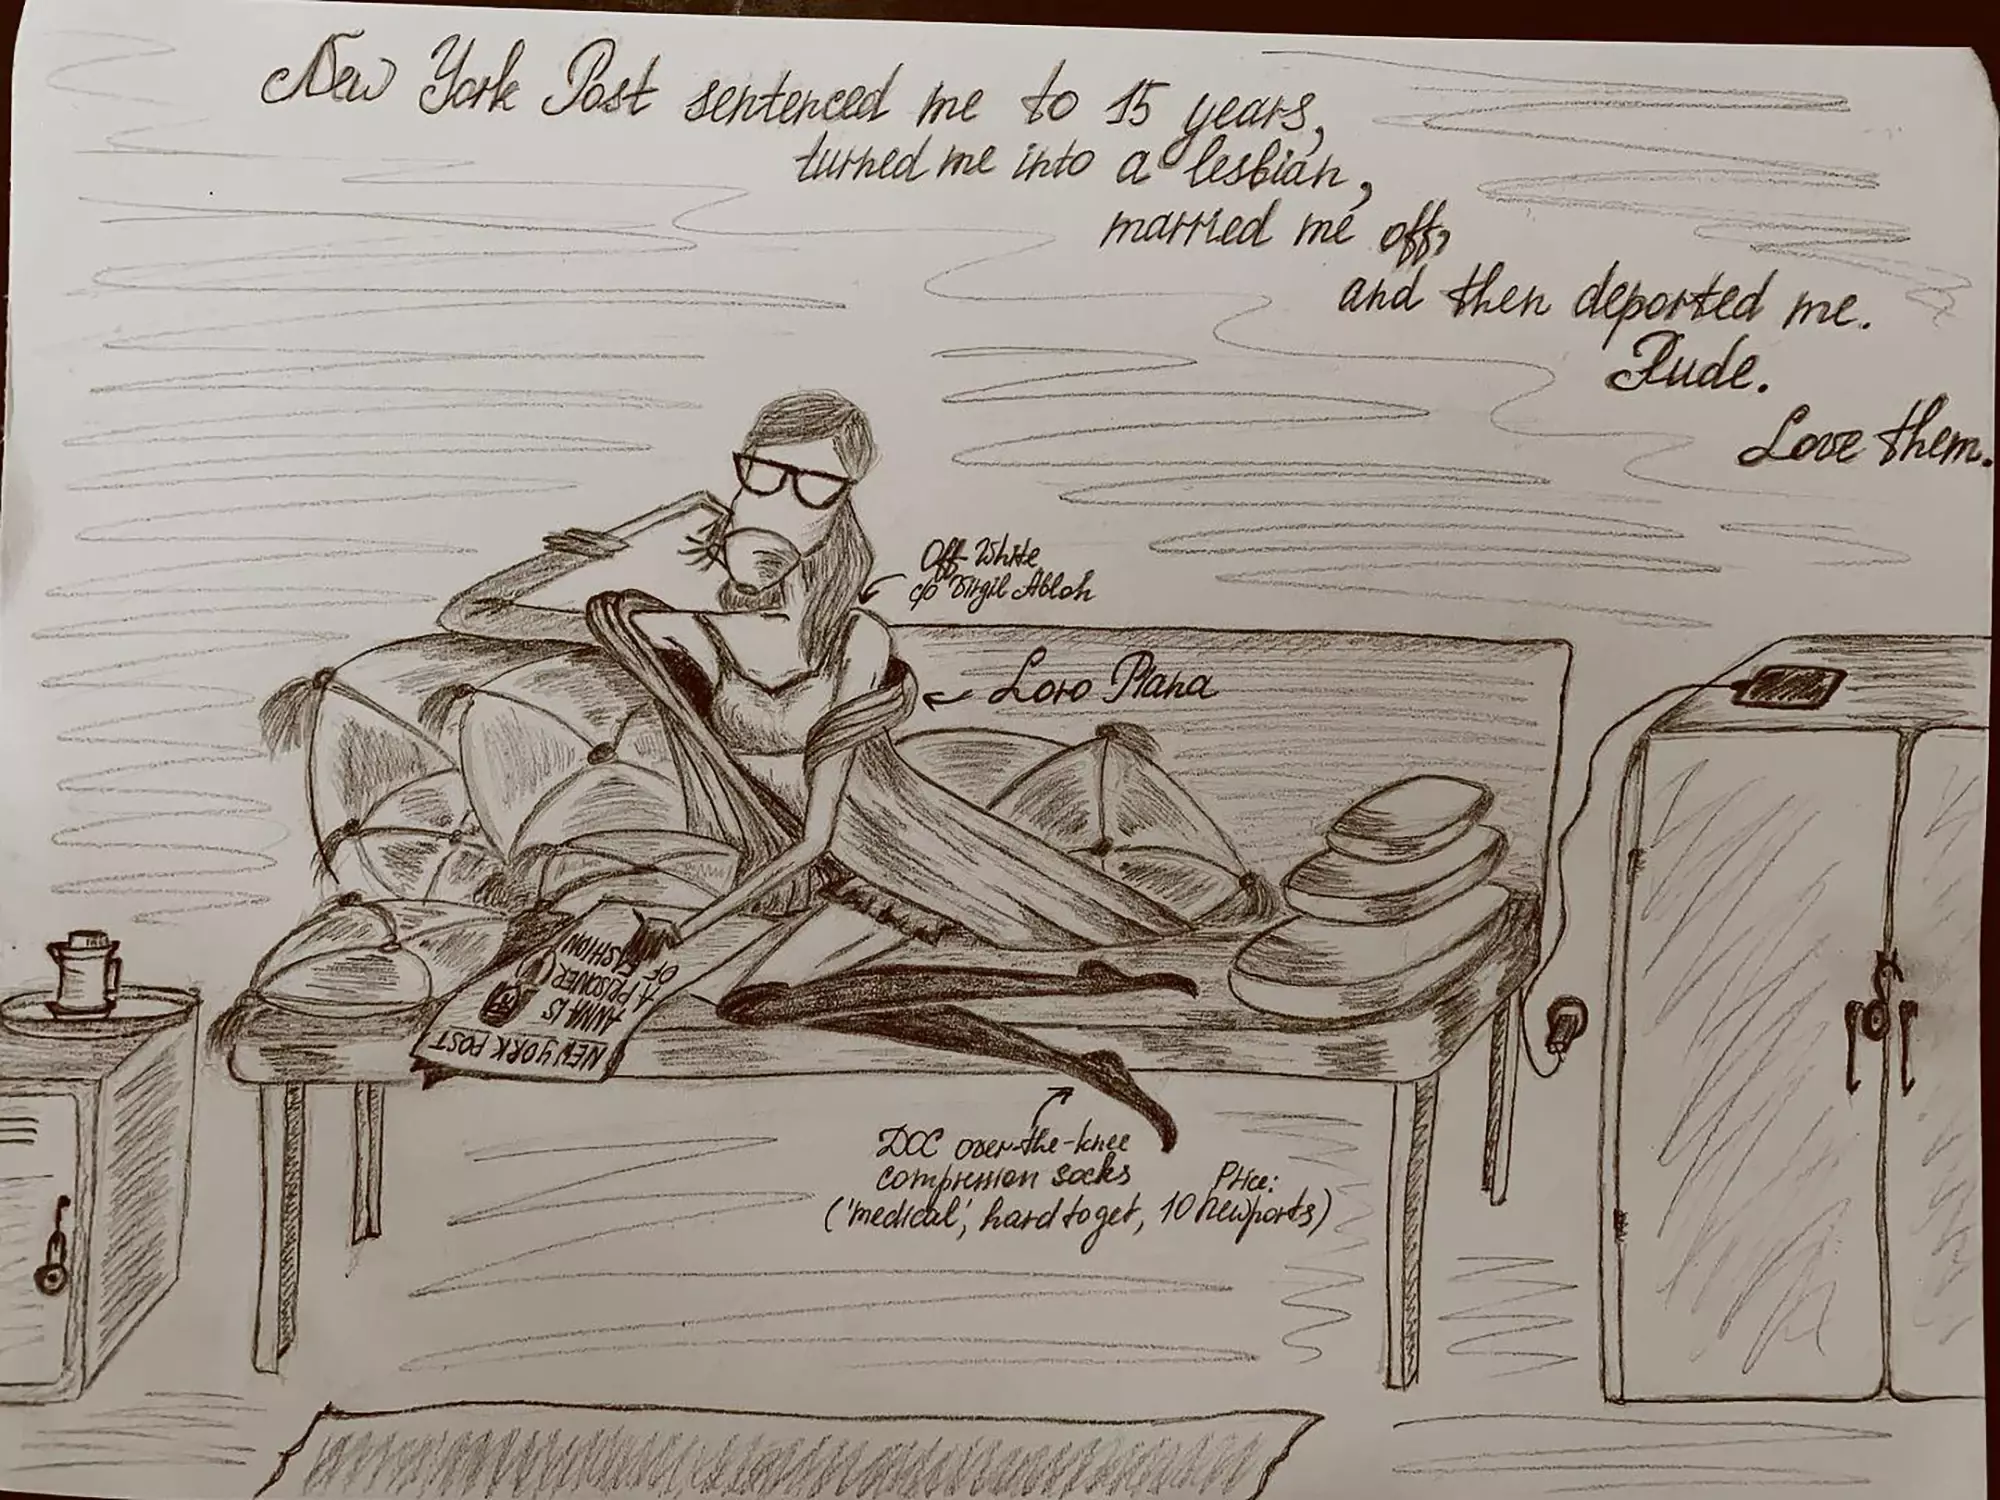 New York Post sentenced me to 15 years,
turned me into a lesbian,
married me off,
and then deported me.
Rude.
Love them.
Off-White
c/o Virgil Abloh
Loro Piana
NEW YORK POST
ANNA IS
A PRISONER
OF FASHION
DOC over-the-knee
compression socks
('medical', hard to get, Price: 10 Newports)